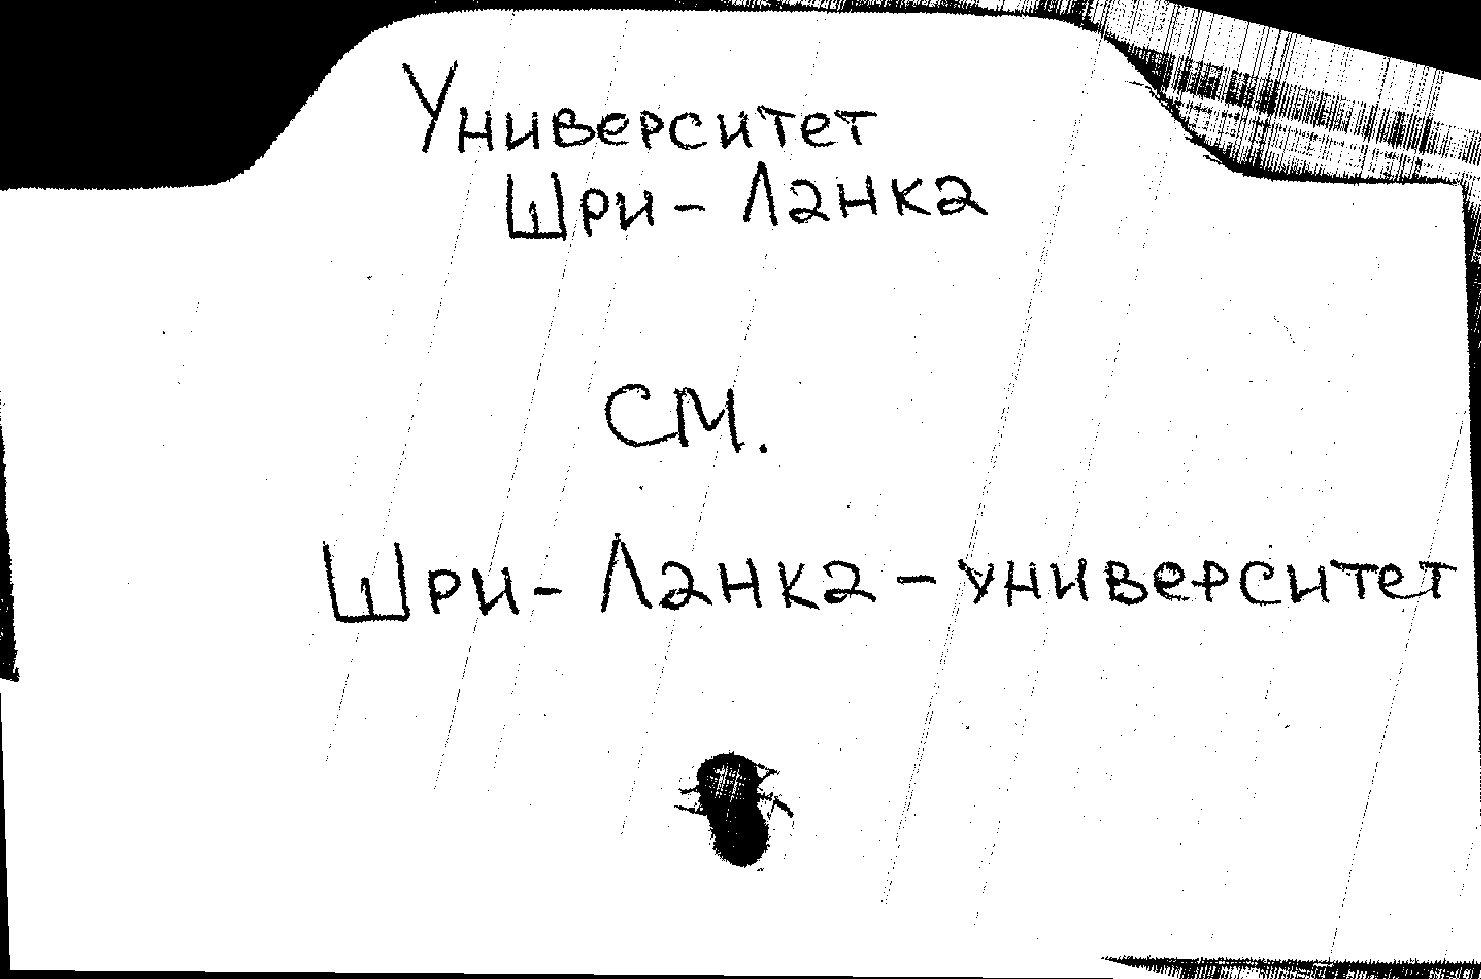 Университет
Шри - Ланка
см.
Шри - Ланка - университет